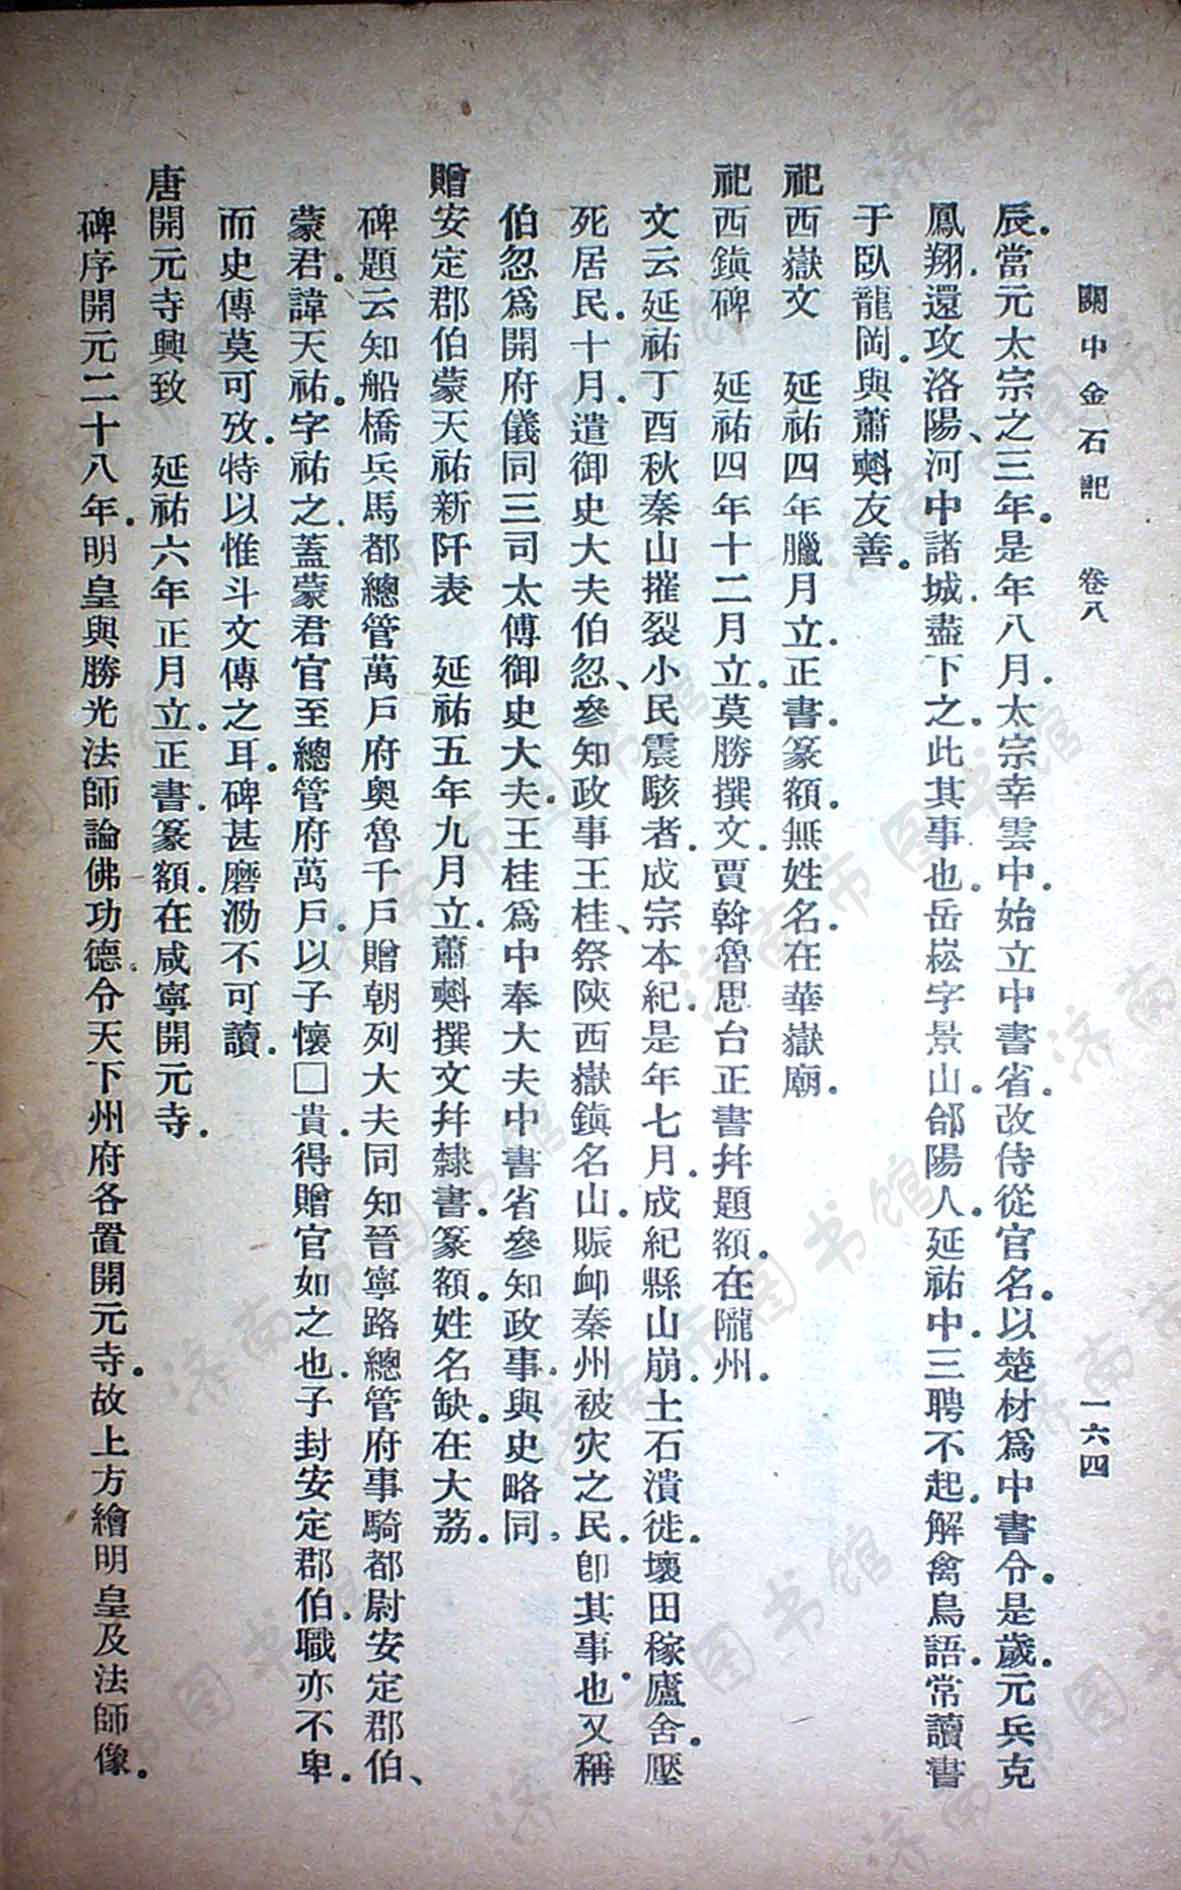 關中金石記　卷八　一六四
辰．當元太宗之三年．是年八月．太宗幸雲中．始立中書省．改侍從官名．以楚材爲中書令．是歲．元兵克
鳳翔．還攻洛陽、河中諸城．盡下之．此其事也．岳崧字景山．郃陽人．延祐中．三聘不起．解禽鳥語．常讀書
于臥龍岡．與蕭𣂏友善．
祀西嶽文　延祐四年臘月立．正書．篆額．無姓名．在華嶽廟．
祀西鎭碑　延祐四年十二月立．莫勝撰文．賈斡魯思台正書幷題額．在隴州．
文云延祐丁酉秋秦山摧裂小民震駭者．成宗本紀．是年七月．成紀縣山崩．土石潰徙．壞田稼廬舍．壓
死居民．十月．遣御史大夫伯忽、參知政事王桂、祭陝西嶽鎭名山．賑卹秦州被灾之民．卽其事也．又稱
伯忽爲開府儀同三司太傅御史大夫．王桂爲中奉大夫中書省參知政事．與史略同．
贈安定郡伯蒙天祐新阡表　延祐五年九月立．蕭𣂏撰文幷隸書．篆額．姓名缺．在大荔．
碑題云知船橋兵馬都總管萬戶府奧魯千戶贈朝列大夫同知晉寧路總管府事騎都尉安定郡伯、
蒙君．諱天祐．字祐之．蓋蒙君官至總管府萬戶．以子懷□貴．得贈官如之也．子封安定郡伯．職亦不卑．
而史傳莫可攷．特以惟斗文傳之耳．碑甚磨泐不可讀．
唐開元寺興致　延祐六年正月立．正書．篆額．在咸寧開元寺．
碑序開元二十八年．明皇與勝光法師論佛功德．令天下州府各置開元寺．故上方繪明皇及法師像．